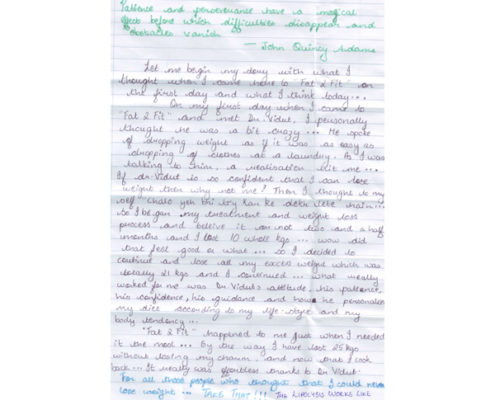 Patience and perseverance have a magical
effect before which difficulties disappear and
obstacles vanish"
— John Quincy Adams
Let me begin my story with what I
thought when I came here to Fat 2 Fit on
the first day and what I think today...
On my first day when I came to
"Fat 2 Fit" and met Dr. Vidut, I personally
thought he was a bit crazy... He spoke
of dropping weight as if it was as easy as
dropping of clothes at a laundry. As I was
talking to him, a realisation hit me...
If dr. Vidut is so confident that I can lose
weight then why not me? Then I thought to my
self "chalo yeh bhi try kar ke dekh lete hain...
So I began my treatment and weight loss
process and believe it or not two and a half
months and I lost 10 whole kgs... wow did
that feel good or what... So I decided to
continue and lose all my excess weight which was
totally 21 kgs and I continued... what really
worked for me was Dr. Vidut's attitude, his patience,
his confidence, his guidance and how he personalises
my diet according to my life-style and my
body tendency...
"Fat 2 Fit" happened to me just when I needed
it the most... By the way I have lost 25 kgs
without losing my charm, and now that I look
back... It really was effortless thanks to Dr. Vidut.
For all those people who thought that I could never
lose weight... TAKE THAT!!! THE LIPOLYSIS WORKS LIKE